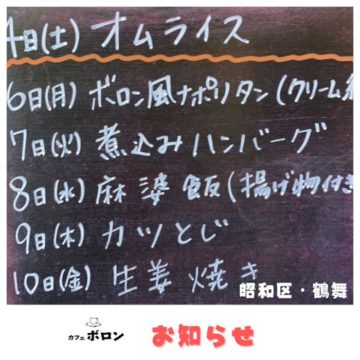 4日(土) オムライス
6日(月) ボロン風ナポリタン(クリーム
7日(火) 煮込みハンバーグ
8日(水) 麻婆飯(揚げ物付き
9日(木) カツとじ
10日(金) 生姜焼き
昭和区・鶴舞
カフェ ボロン お知らせ